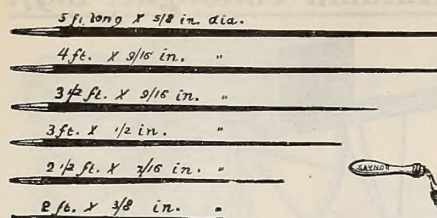 5 ft. long X 5/8 in. dia.
4 ft. X 9/16 in. "
3 1/2 ft. X 9/16 in. "
3 ft. X 1/2 in. "
2 1/2 ft. X 7/16 in. "
SAYNOR
2 ft. X 3/8 in. "